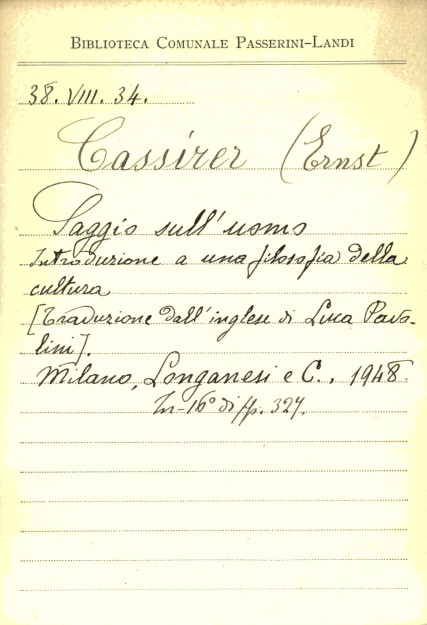 Biblioteca Comunale Passerini-Landi
38. VIII. 34.
Cassirer (Ernst)
Saggio sull'uomo
Introduzione a una filosofia della
cultura
[Traduzione dall'inglese di Luca Pavo-
lini].
Milano, Longanesi e C., 1948.
In-16° di pp. 327.